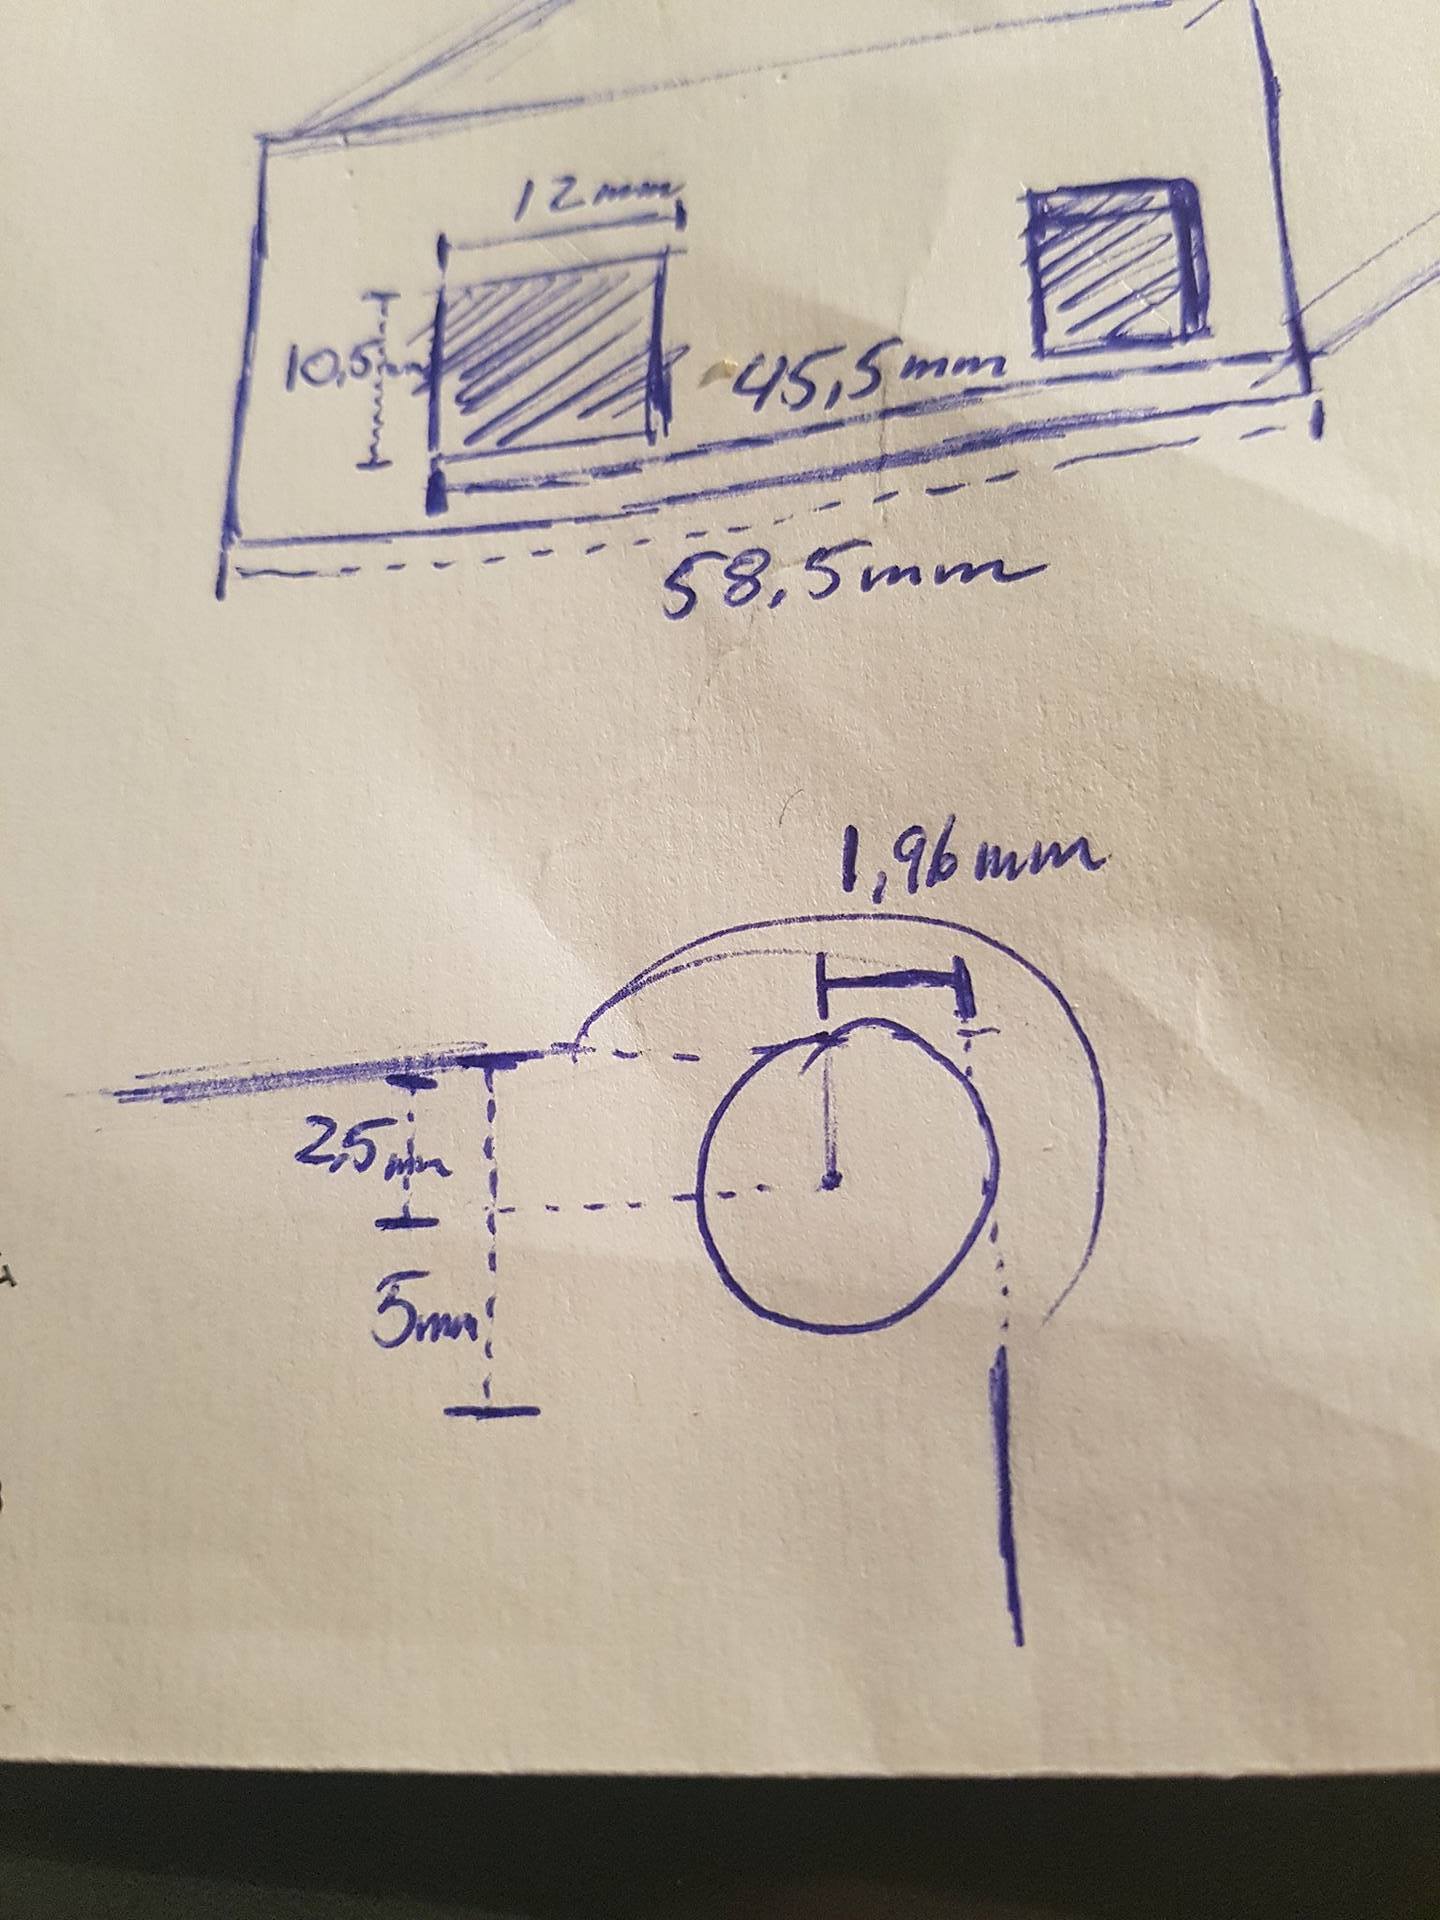 12mm
10,5mm
45,5mm
58,5mm
1,96mm
2,5mm
5mm